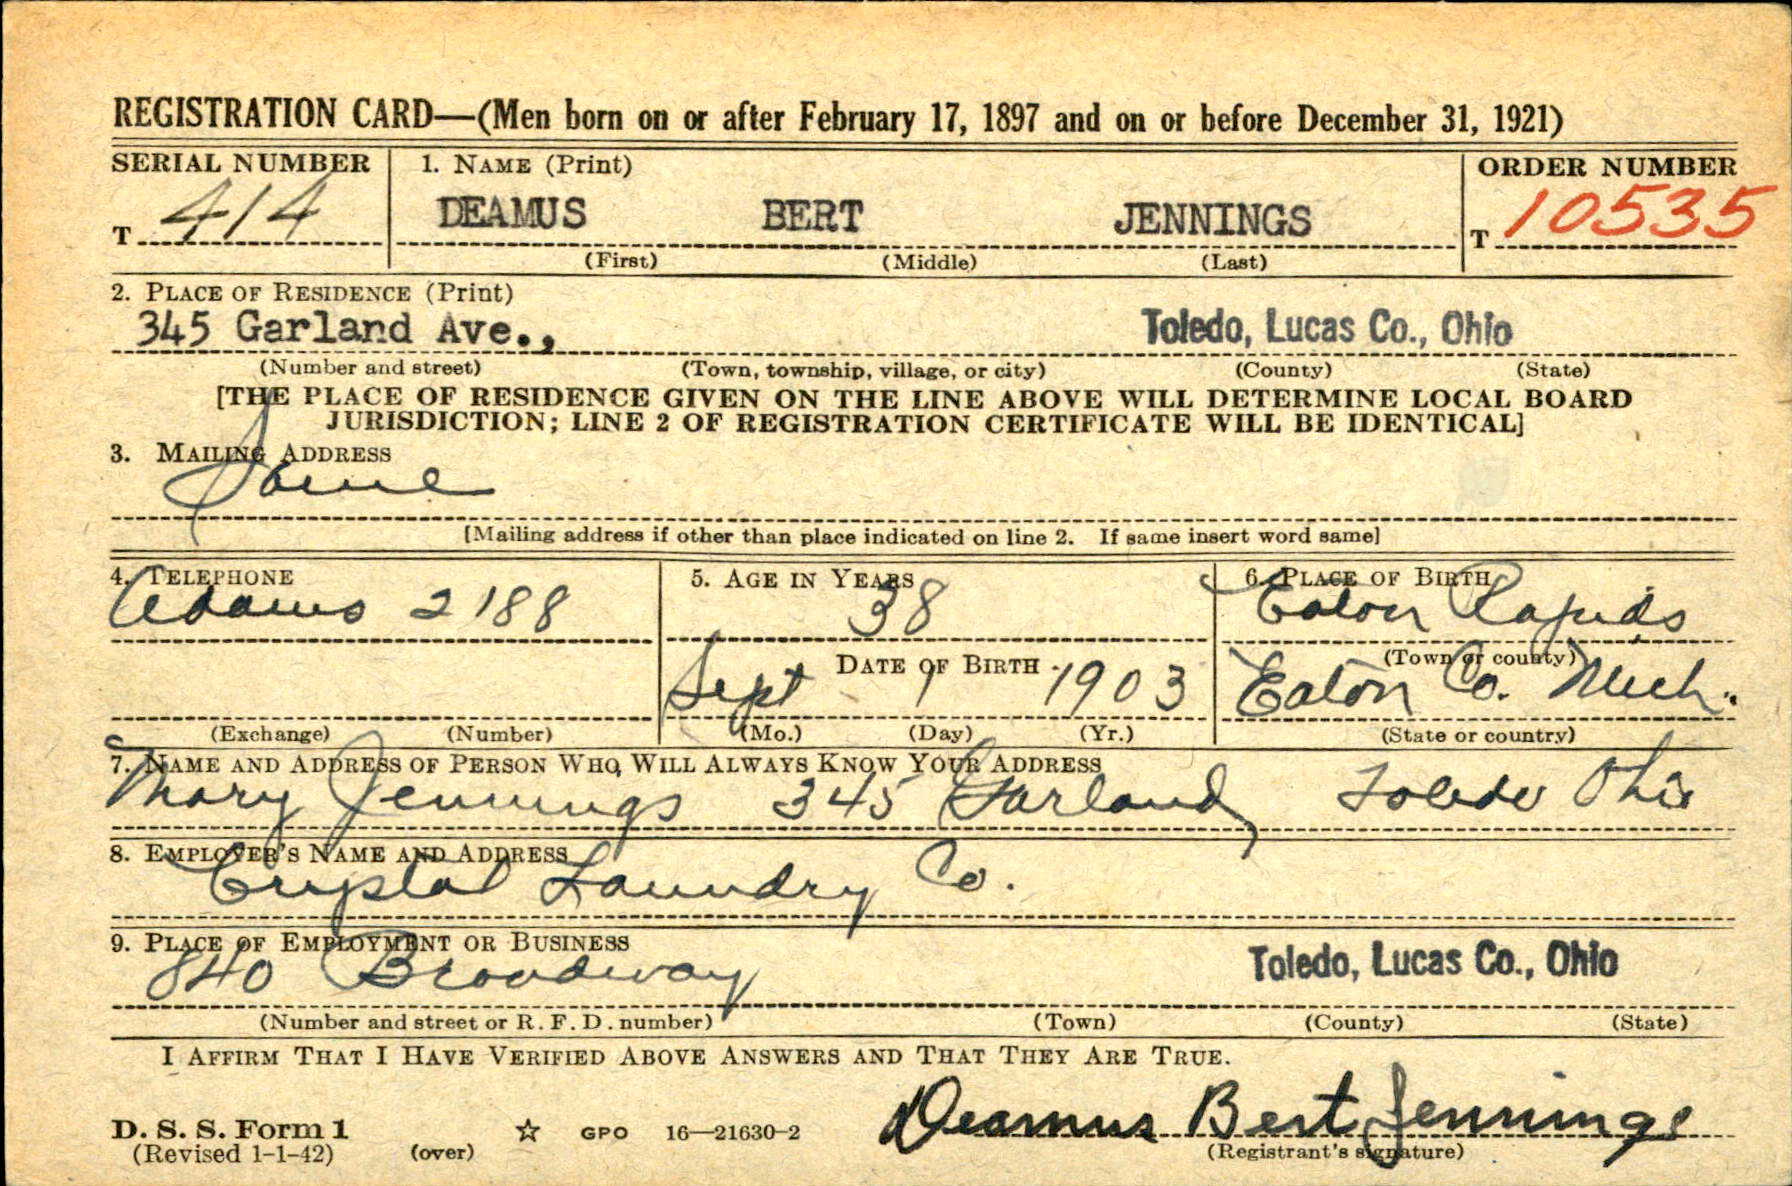 REGISTRATION CARD—(Men born on or after February 17, 1897 and on or before December 31, 1921)
SERIAL NUMBER 1. NAME (Print) ORDER NUMBER
T 414 DEAMUS BERT JENNINGS T 10535
(First) (Middle) (Last)
2. PLACE OF RESIDENCE (Print)
345 Garland Ave., Toledo, Lucas Co., Ohio
(Number and street) (Town, township, village, or city) (County) (State)
[THE PLACE OF RESIDENCE GIVEN ON THE LINE ABOVE WILL DETERMINE LOCAL BOARD
JURISDICTION; LINE 2 OF REGISTRATION CERTIFICATE WILL BE IDENTICAL]
3. MAILING ADDRESS
Same
[Mailing address if other than place indicated on line 2. If same insert word same]
4. TELEPHONE 5. AGE IN YEARS 6. PLACE OF BIRTH
Adams 2188 38 Eaton Rapids
DATE OF BIRTH (Town or county)
Sept 1 1903 Eaton Co. Mich.
(Exchange) (Number) (Mo.) (Day) (Yr.) (State or country)
7. NAME AND ADDRESS OF PERSON WHO WILL ALWAYS KNOW YOUR ADDRESS
Mary Jennings 345 Garland, Toledo Ohio
8. EMPLOYER'S NAME AND ADDRESS
Crystal Laundry Co.
9. PLACE OF EMPLOYMENT OR BUSINESS
840 Broadway Toledo, Lucas Co., Ohio
(Number and street or R. F. D. number) (Town) (County) (State)
I AFFIRM THAT I HAVE VERIFIED ABOVE ANSWERS AND THAT THEY ARE TRUE.
Deamus Bert Jennings
D. S. S. Form 1 GPO 16—21630-2
(Revised 1-1-42) (over) (Registrant's signature)